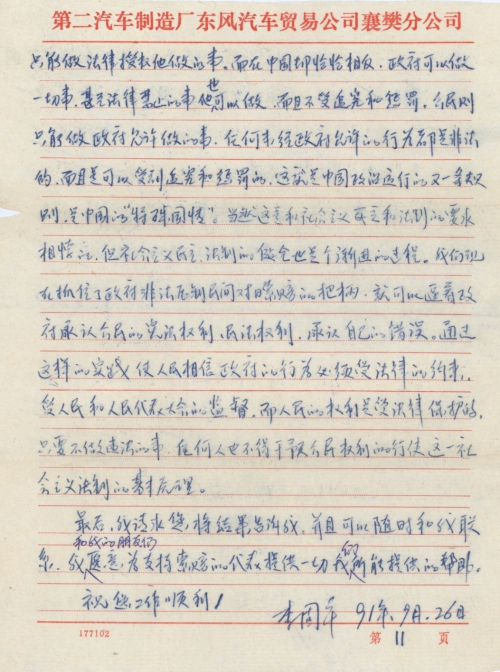 第二汽车制造厂东风汽车贸易公司襄樊分公司
只能做法律授权他做的事。而在中国却恰恰相反，政府可以做
一切事，甚至法律禁止的事他也可以做，而且不受追究和惩罚。公民则
只能做政府允许做的事，任何未经政府允许的行为都是非法
的，而且是可以受到追究和惩罚的，这就是中国政治运行的又一条规
则，是中国的“特殊国情”。当然这是和社会主义民主和法制的要求
相悖的，但社会主义民主、法制的健全也是个渐进的过程。我们现
在抓住了政府非法压制民间对日索赔的把柄，就可以逼着政
府承认公民的宪法权利、民法权利，承认自己的错误。通过
这样的实践，使人民相信政府的行为必须受法律的约束，
受人民和人民代表大会的监督，而人民的权利是受法律保护的，
只要不做违法的事，任何人也不得干预公民权利的行使这一社
会主义法制的基本原理。
最后，我请求您将结果告诉我，并且可以随时和我联
系，我和我的朋友们愿意为支持索赔的代表提供一切我们所能提供的帮助。
祝您工作顺利！
李固平 91年9月26日
177102
第 11 页